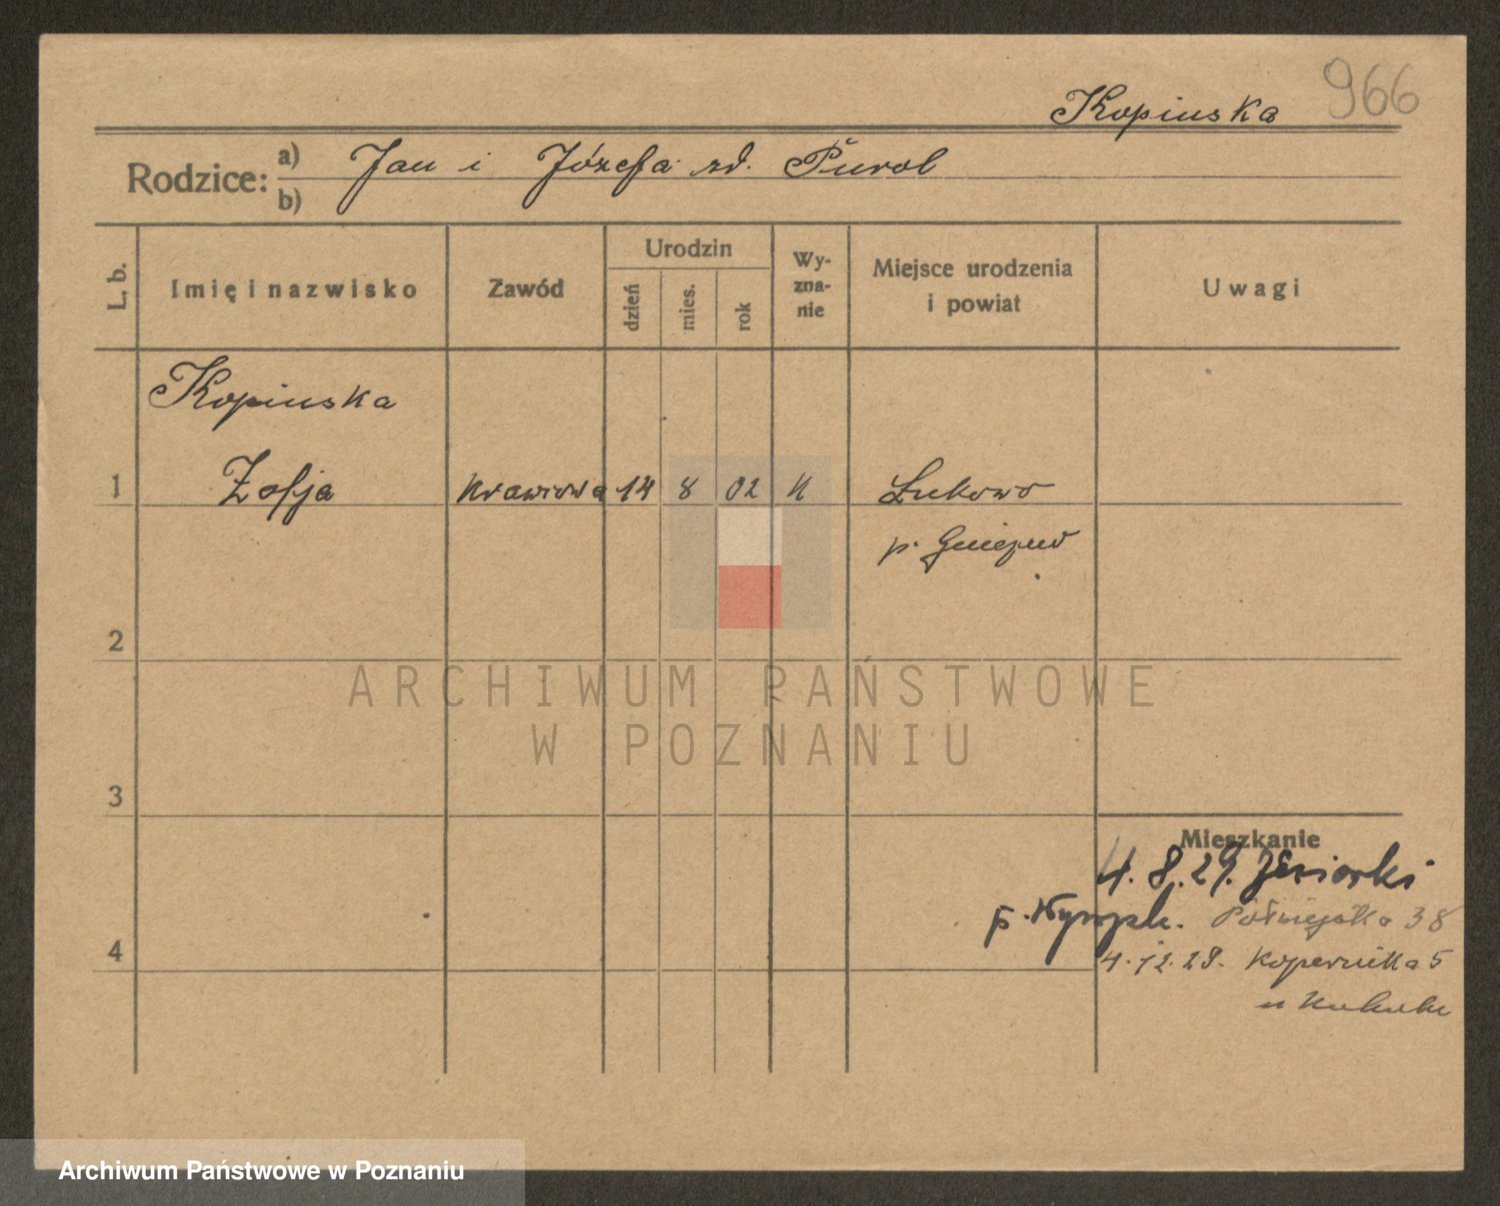 966
Kopinska
Rodzice: a) Jan i Józefa zd. Purol
b)
L. b.
Imię i nazwisko
Zawód
Urodzin
dzień
mies.
rok
Wy-
zna-
nie
Miejsce urodzenia
i powiat
Uwagi
Kopinska
1 Zofja krawcowa 14 8 02 k Łukowo
p. Gniezno
2
3
4
Mieszkanie
4. 8. 29. Jeziorki
Półwiejska 38
4.12.29. Kopernika 5
u
ARCHIWUM PAŃSTWOWE
W POZNANIU
Archiwum Państwowe w Poznaniu